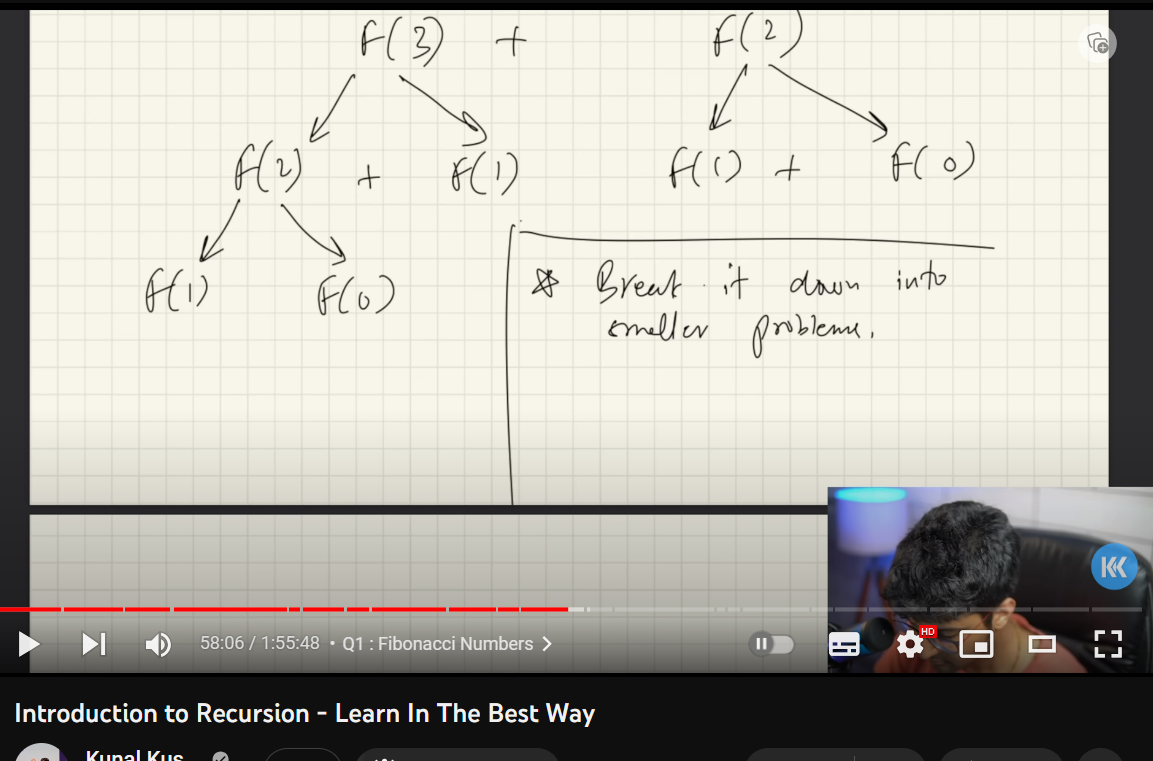 F(3) + F(2)
F(2) + F(1) F(1) + F(0)
F(1) F(0)
Break it down into
smaller problems.
HD
58:06 / 1:55:48 • Q1 : Fibonacci Numbers
Introduction to Recursion - Learn In The Best Way
Kunal Kus